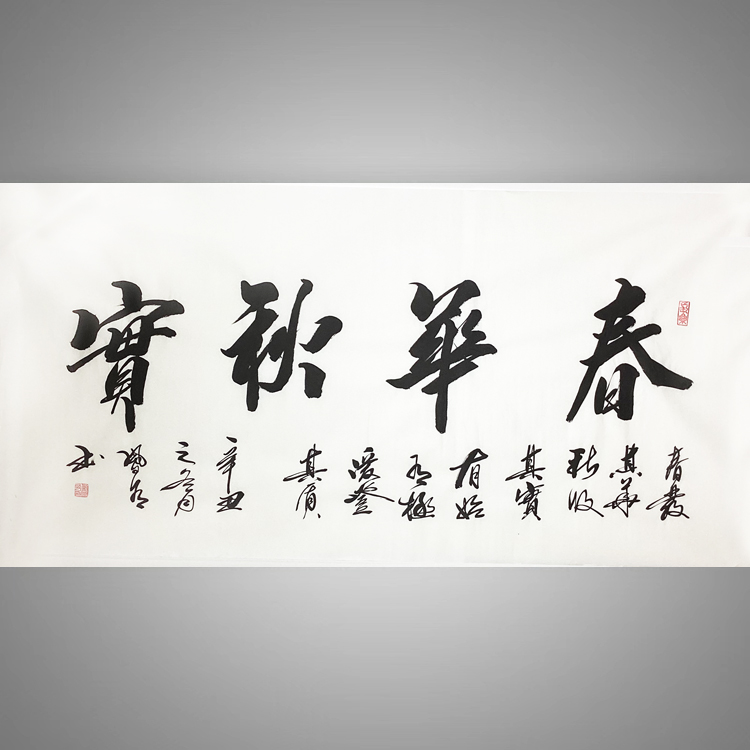 春華秋實
春發
其華
秋收
其實
有始
有極
爰登
其質
辛丑
之冬月
書